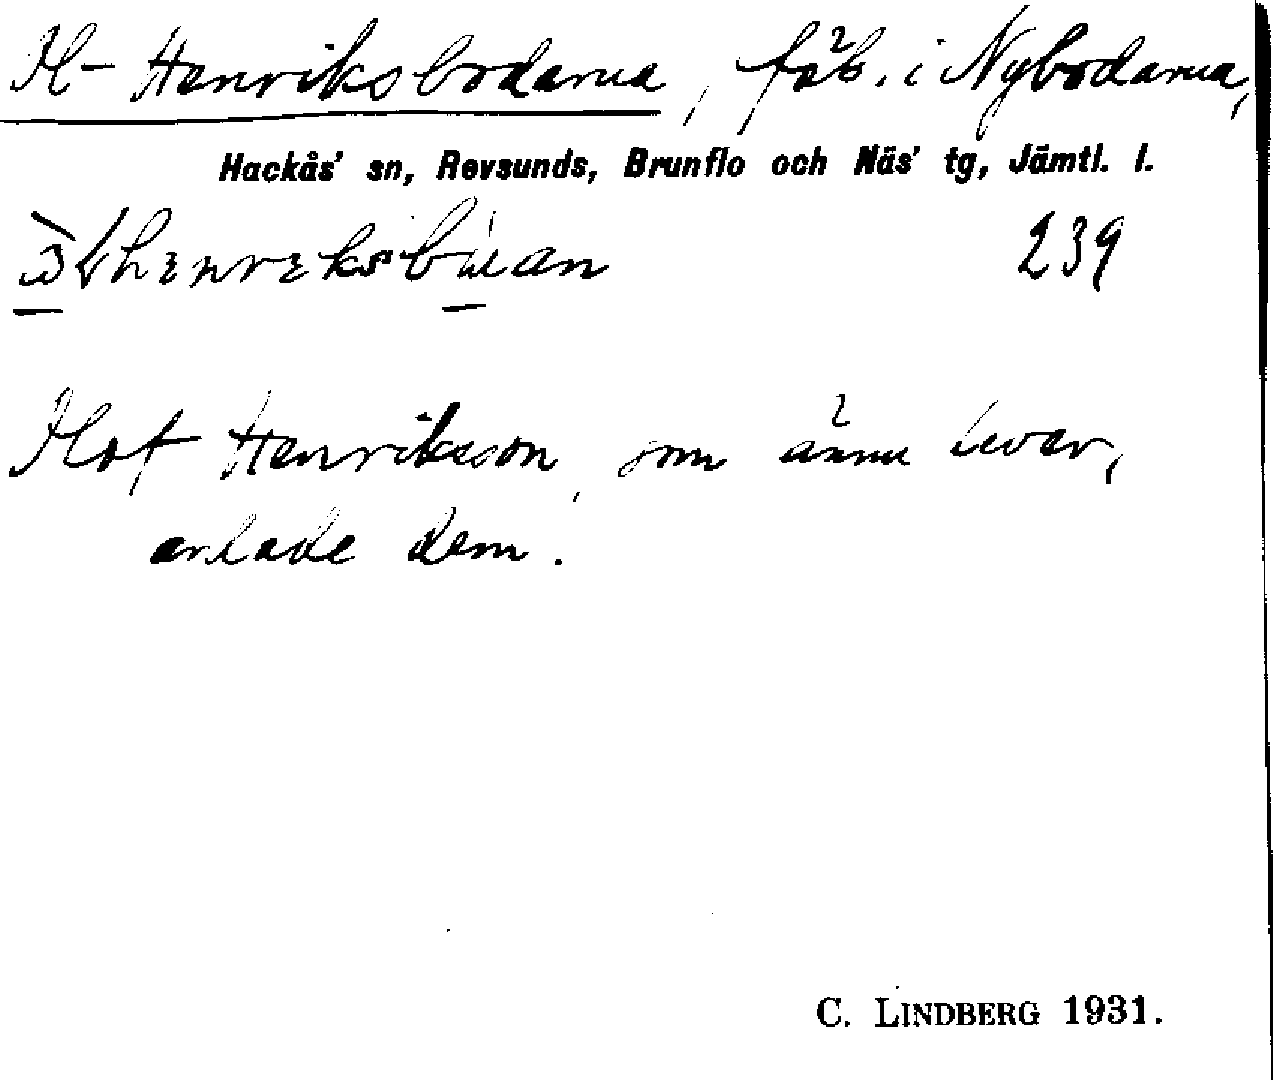 Ol-Henriksbodarna, fäb. i Nybodarna,
Hackås' sn, Revsunds, Brunflo och Näs' tg, Jämtl. l.
239
Olof Henriksson, som ännu lever,
anlade dem.
C. LINDBERG 1931.